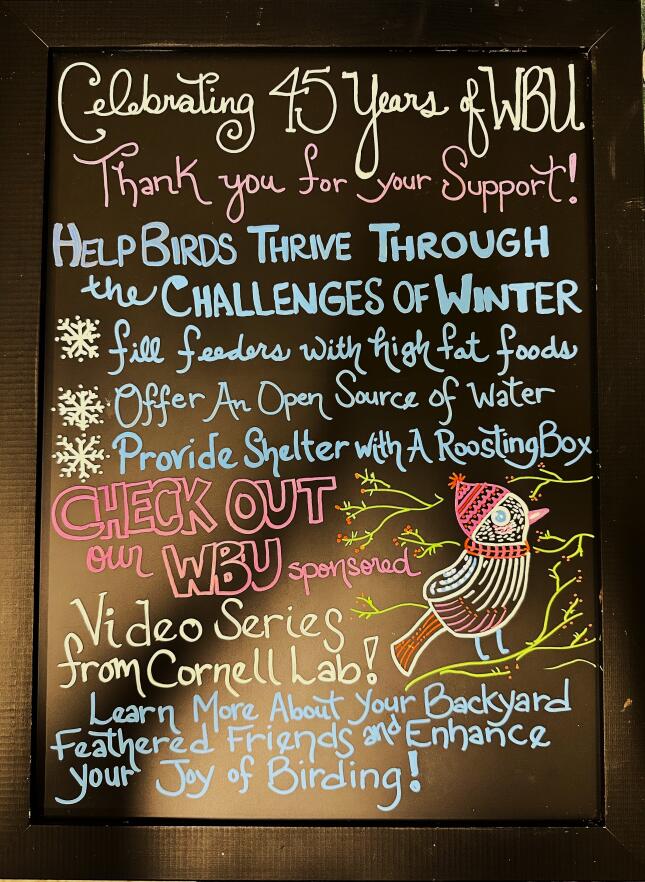 Celebrating 45 Years of WBU
Thank you for your Support!
HELP BIRDS THRIVE THROUGH
the CHALLENGES OF WINTER
fill feeders with high fat foods
Offer An Open Source of Water
Provide Shelter with A Roosting Box
CHECK OUT
our WBU sponsored
Video Series
from Cornell Lab!
Learn More About Your Backyard
Feathered Friends and Enhance
your Joy of Birding!